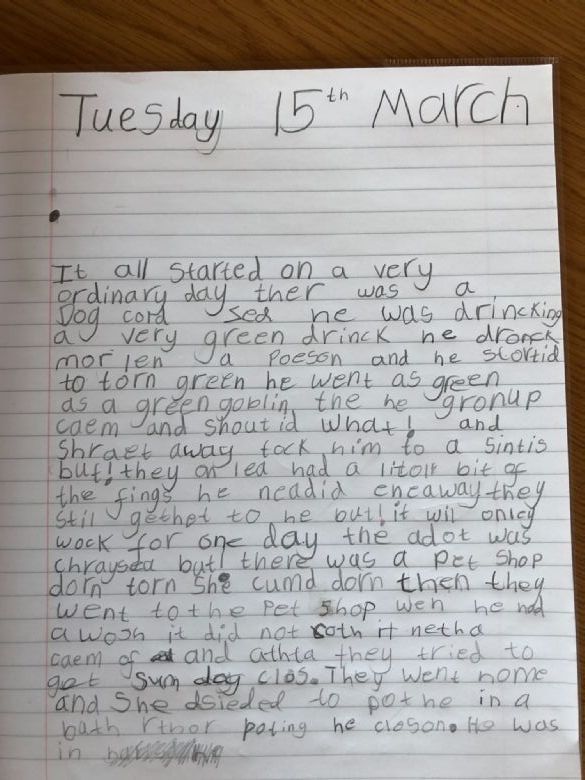 Tuesday 15th March
It all started on a very
ordinary day ther was a
Dog cord Sed he was drincking
a very green drinck he dronck
mor len a Poeson and he stortid
to torn green he went as green
as a green goblin, the he gronup
caem and shout id what! and
Shraet away tock him to a Sintis
but! they on lea had a litolt bit of
the fings he neadid encaway they
Stil gethet to he but! it wil onley
wock for one day the adot was
chraysed but! there was a pet shop
dorn torn She cumd dorn then they
went to the Pet Shop wen he had
a wosh it did not it netha
caem of and athta they tried to
get Sum day clos. They went home
and She dsieded to pot he in a
bath rthor poting he closon. He was
in